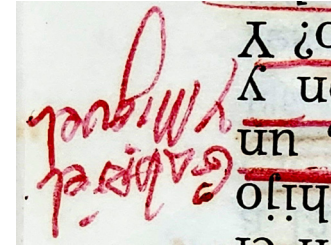 hijo
un
n y
o? Y
Gabriel
y Miguel